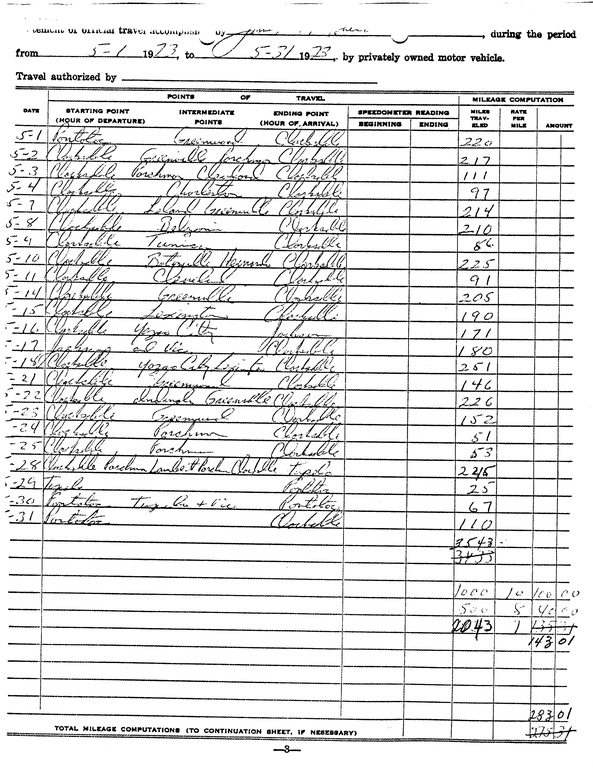 tement of official travel accomplis by , during the period
from 5-1 1973, to 5-31 1973, by privately owned motor vehicle.
Travel authorized by
POINTS OF TRAVEL MILEAGE COMPUTATION
DATE STARTING POINT (HOUR OF DEPARTURE) INTERMEDIATE POINTS ENDING POINT (HOUR OF ARRIVAL) SPEEDOMETER READING BEGINNING ENDING MILES TRAV-ELED RATE PER MILE AMOUNT
5-1 Pontotoc Greenwood Clarksdale 220
5-2 Clarksdale Greenville Parchman Clarksdale 217
5-3 Clarksdale Parchman Cleveland Clarksdale 111
5-4 Clarksdale Charleston Clarksdale 97
5-7 Clarksdale Leland Greenville Clarksdale 214
5-8 Clarksdale Belzoni Clarksdale 210
5-9 Clarksdale Tunica Clarksdale 86
5-10 Clarksdale Batesville Clarksdale 225
5-11 Clarksdale Cleveland Clarksdale 91
5-14 Clarksdale Greenville Clarksdale 205
5-15 Clarksdale Lexington Clarksdale 190
5-16 Clarksdale Yazoo City Jackson 171
5-17 Jackson and Vic. Clarksdale 180
5-18 Clarksdale Yazoo City Lexington Clarksdale 251
5-21 Clarksdale Greenwood Clarksdale 146
5-22 Clarksdale Greenville Clarksdale 226
5-23 Clarksdale Greenwood Clarksdale 152
5-24 Clarksdale Parchman Clarksdale 51
5-25 Clarksdale Parchman Clarksdale 53
5-28 Clarksdale Parchman Lambert Parchman Clarksdale Tupelo 225
5-29 Tupelo Pontotoc 25
5-30 Pontotoc Tupelo + Vic Pontotoc 67
5-31 Pontotoc Clarksdale 110
3543
3433
1000 10 100 00
500 8 40 00
2043 7 135 31
143 01
283 01
TOTAL MILEAGE COMPUTATIONS (TO CONTINUATION SHEET, IF NESESSARY) 275 31
—3—